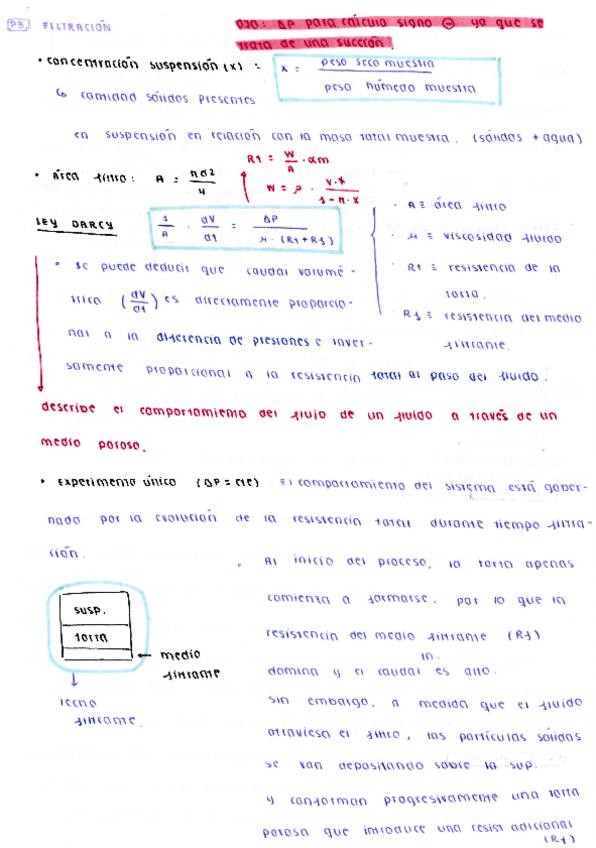 P3. FILTRACIÓN
OJO: ΔP para cálculo signo ⊖ ya que se
trata de una succión.
• concentración suspensión (x) : x = peso seco muestra / peso húmedo muestra
↳ cantidad sólidos presentes
en suspensión en relación con la masa total muestra. (sólidos + agua)
• área filtro: A = πd²/4
Rt = W/A · αm
W = ρ · V·x / 1-m·x
LEY DARCY
1/A · dV/dt = ΔP / μ·(Rt+Rf)
· A ≡ área filtro
· μ ≡ viscosidad fluido
· Rt ≡ resistencia de la
torta.
· Rf ≡ resistencia del medio
filtrante.
• se puede deducir que caudal volumé-
trico (dV/dt) es directamente proporcio-
nal a la diferencia de presiones e inver-
samente proporcional a la resistencia total al paso del fluido.
describe el comportamiento del flujo de un fluido a través de un
medio poroso.
• Experimento único (ΔP = cte) El comportamiento del sistema está gober-
nado por la evolución de la resistencia total durante tiempo filtra-
ción.
Al inicio del proceso, la torta apenas
comienza a formarse, por lo que la
resistencia del medio filtrante (Rf)
in.
domina y el caudal es alto.
sin embargo, a medida que el fluido
atraviesa el filtro, las partículas sólidas
se van depositando sobre la sup.
y conforman progresivamente una torta
porosa que introduce una resist adicional
susp.
torta
← medio
filtrante
↓
lecho
filtrante.